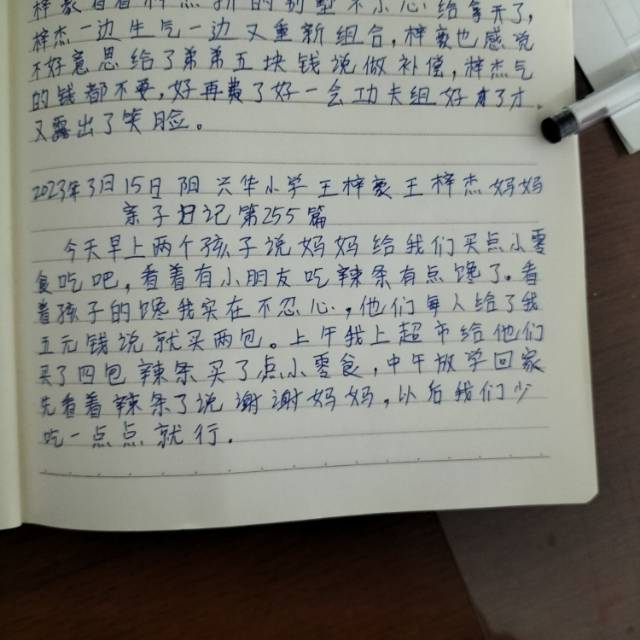 梓豪看着梓杰拼的别墅不小心给拿天了,
梓杰一边生气一边又重新组合,梓豪也感觉
不好意思给了弟弟五块钱说做补偿,梓杰气
的钱都不要,好再费了好一会功夫组好有了才,
又露出了笑脸。
2023年3月15日 阳 兴华小学王梓豪王梓杰妈妈
亲子日记第255篇
今天早上两个孩子说妈妈给我们买点小零
食吃吧,看着有小朋友吃辣条有点馋了。看
着孩子的馋我实在不忍心,他们每人给了我
五元钱说就买两包。上午我上超市给他们
买了四包辣条买了点小零食,中午放学回家
先看着辣条了说谢谢妈妈,以后我们少
吃一点点就行.